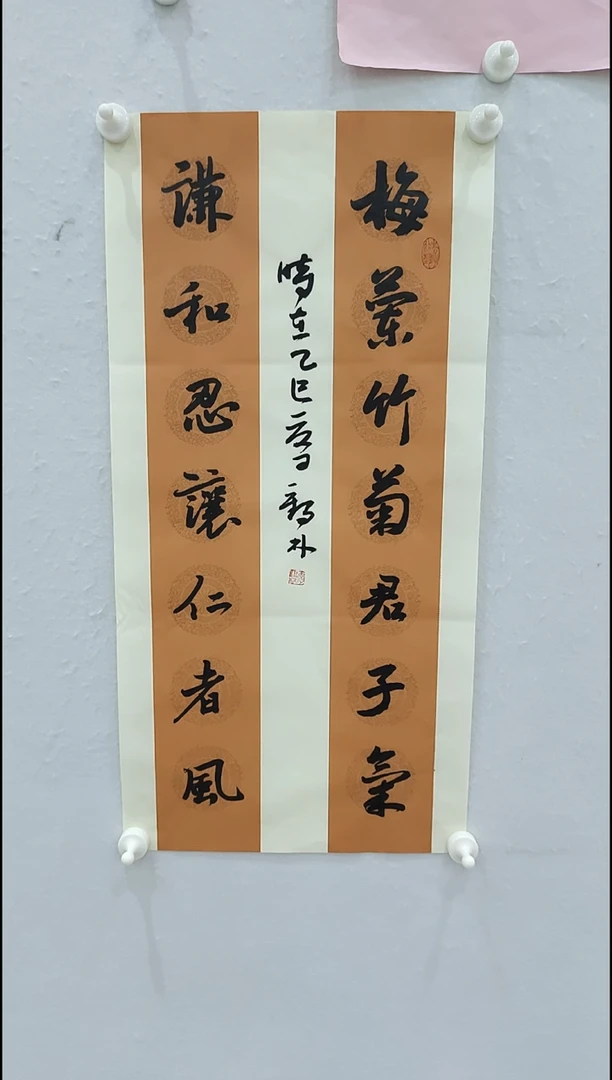 梅蘭竹菊君子氣
謙和忍讓仁者風
時在乙巳